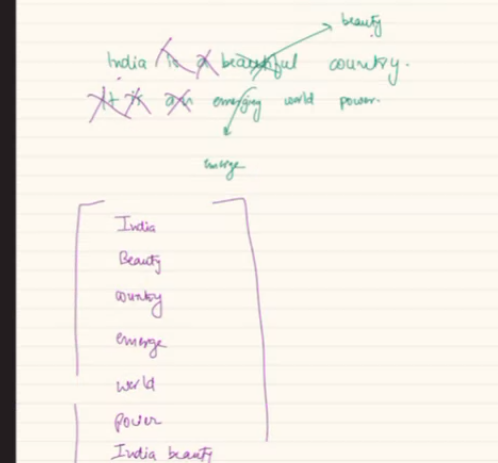 beauty
India is a beautiful country.
It is an emerging world power.
emerge
India
Beauty
country
emerge
world
power
India beauty